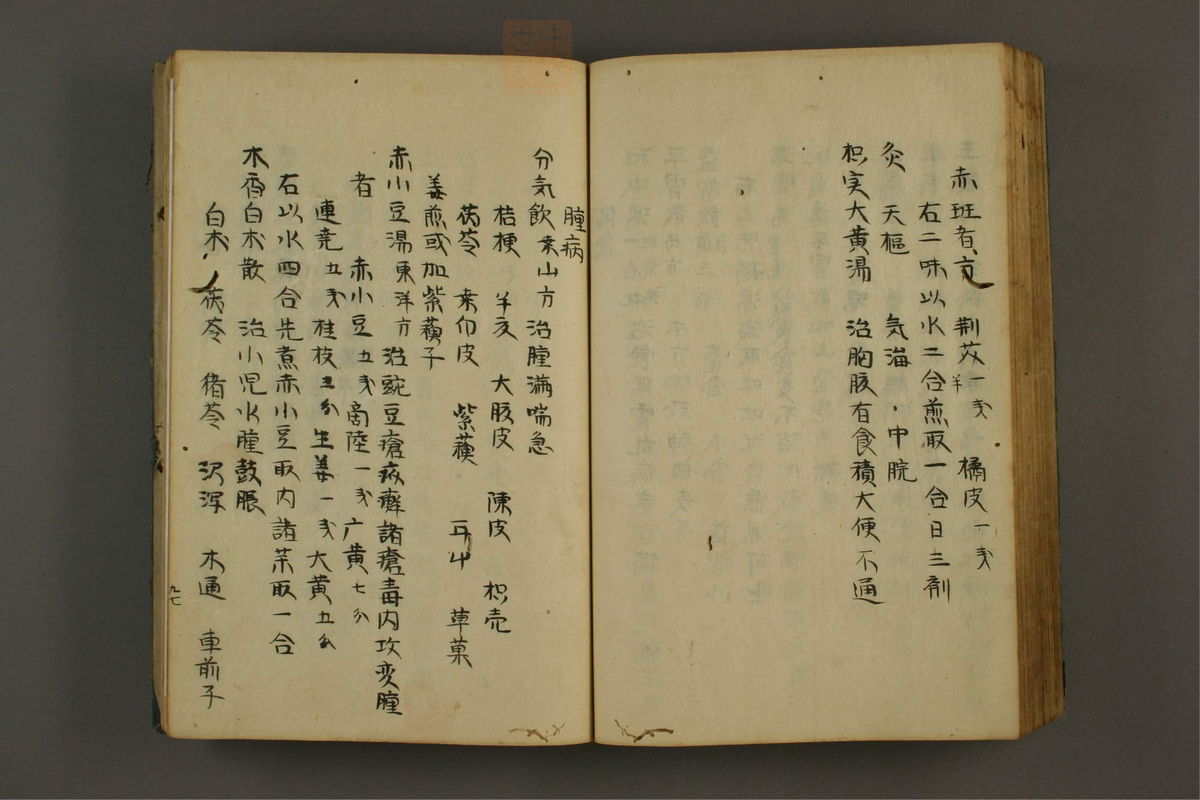 赤班者方 荊芥一戔 橘皮一戔
右二味以水二合煎取一合日三剤
灸 天樞 気海 中脘
枳実大黄湯 治胸腹有食積大便不通
腫病
分気飲 治腫満喘急
桔梗 半夏 大腹皮 陳皮 枳壳
茯苓 桑白皮 紫蘓 草菓
姜煎或加紫蘓子
赤小豆湯東洋方 治豌豆瘡疥癬諸瘡毒内攻変腫
者 赤小豆五戔 商陸一戔 广黄七分
連壳五戔 桂枝五分 生姜一戔 大黄五分
右以水四合先煮赤小豆取内諸薬取一合
木香白朮散 治小児水腫鼓脹
白朮 茯苓 猪苓 沢瀉 木通 車前子
九七